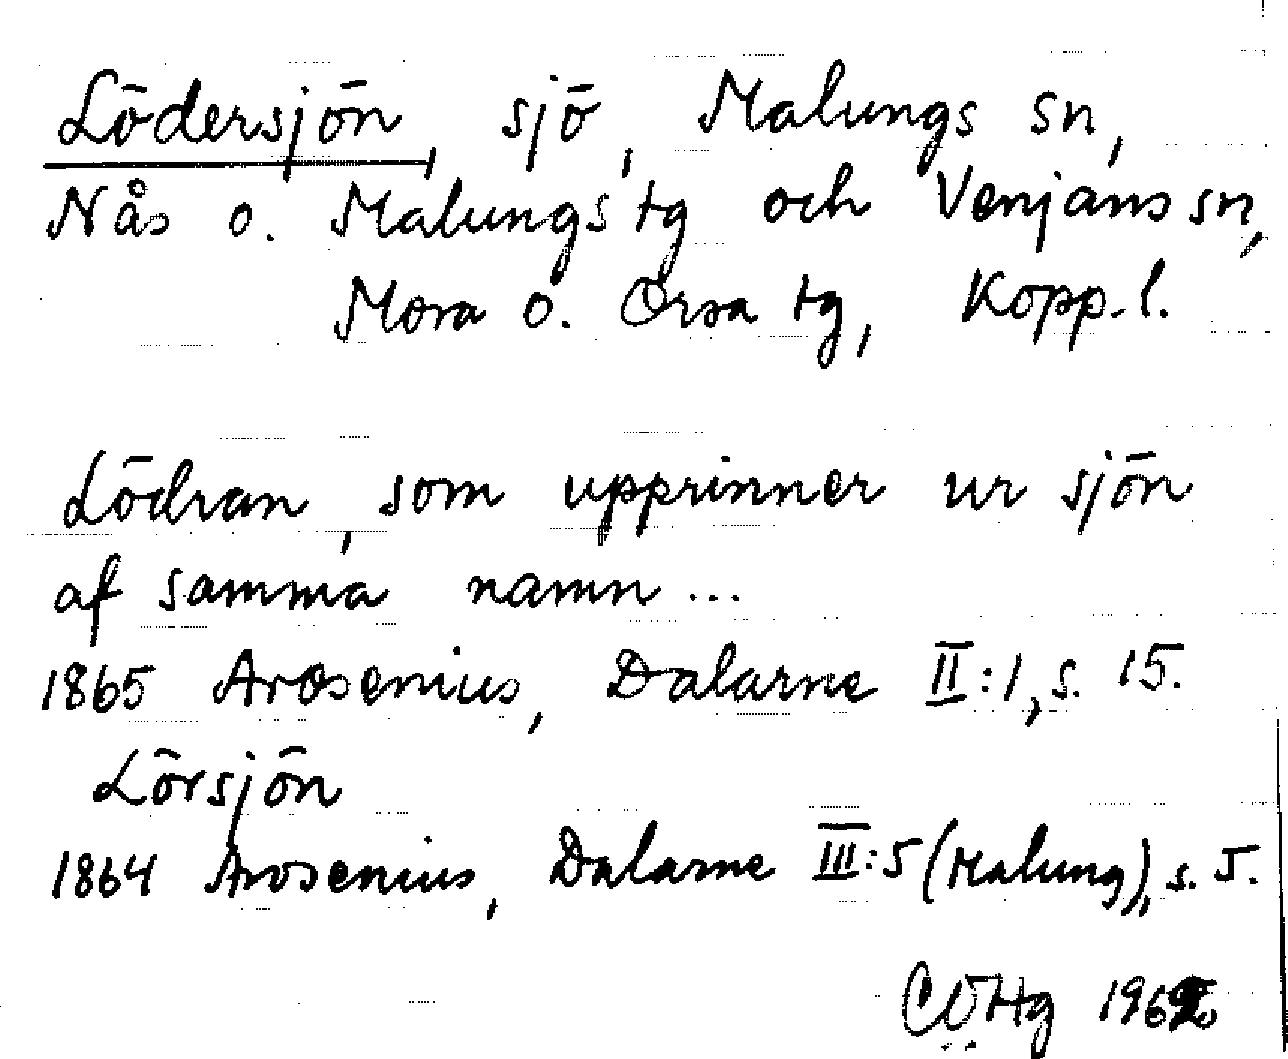 Lödersjön, sjö, Malungs sn,
Nås o. Malungs tg och Venjans sn,
Mora o. Orsa tg, Kopp. l.
Lödran, som upprinner ur sjön
af samma namn...
1865 Arosenius, Dalarne II:1, s. 15.
Lörsjön
1864 Arosenius, Dalarne III:5 (Malung), s. 5.